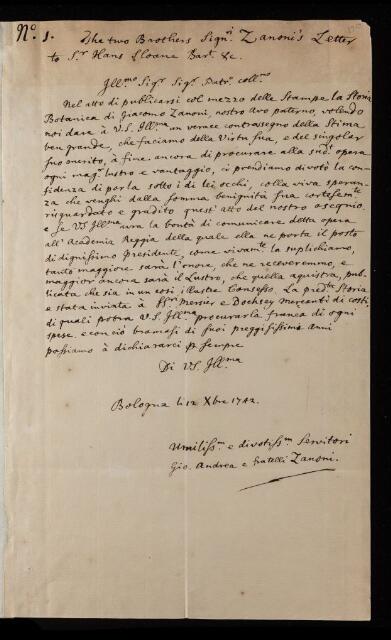 No. 1. The two Brothers Sign.i Zanoni's Letter
to Sr. Hans Sloane Bart. &c.
Jll.mo Sigr Sigr Patr. coll.mo
Nel atto di publicarsi col mezzo delle Stampe la Storia
Botanica di Giacomo Zanoni, nostro Avo paterno, volendo
noi dare à V.S. Jll.ma un verace contrassegno della Stima
ben grande, che faciamo della Virtu sua, e del singolar
suo merito, à fine ancora di procurare alla sud.a opera
ogni mag.r lustro e vantaggio, ci prendiamo divotò la con-
fidenza di porla sotto i di lei occhi, colla viva speran-
za che venghi dalla somma benignità sua cortesam.te
risguardato e gradito quest' atto del nostro ossequio
e se VS Jll.ma avra la bontà di comunicare detta opera
all' Academia Reggia della quale ella ne porta il posto
di dignissimo Presidente, come vivam.te la suplichiamo,
tanto maggiore sarà l'onore, che ne receveremmo, e
maggior ancora sarà il Lustro, che quella aquistra, pub-
licata che sia in un cosi illustre Consesso. La pred.ta Storia
e stata inviata à SS.ri presier e Dochsey mercanti di costi,
di quali potra V.S. Jll.ma procurarla franca di ogni
spese e con ciò bramosi di suoi preggissimi anni
possiamo à dichiararci per sempre
Di VS. Jll.ma
Bologna li 12 Xbre 1742.
Umiliss.mi e divotiss.mi Servitori
Gio. Andrea e fratelli Zanoni.